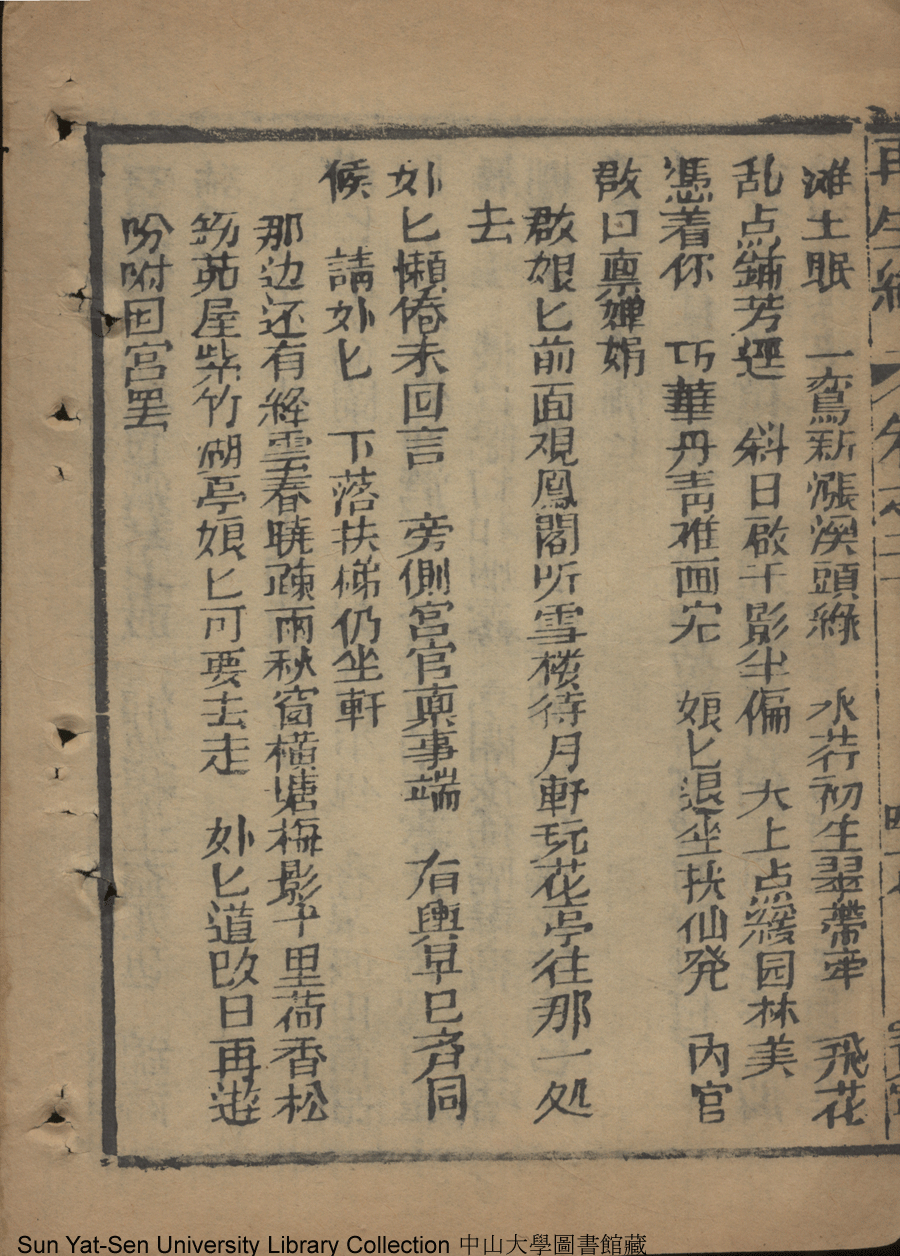 滩土眠　一鸾新漲澳頭綠　水荇初生翠帶牢　飛花
乱点鋪芳逕　斜日啟干影坐偏　大上点綴园林美
憑着你　巧華丹青难画完　娘匕退坐扶仙発　內官
啟口稟嬋娟
啟娘匕前面观鳳閣听雪楼待月軒玩花亭往那一処
去
如匕懶倦未回言　旁側宮官稟事端　有輿早已齐同
候　請如匕　下落扶梯仍坐軒
那边还有絳雲春曉疎雨秋窗橫塘梅影十里荷香松
筠苑屋紫竹湖亭娘匕可要去走　如匕道改日再遊
吩咐回宮罢
再生緣
Sun Yat-Sen University Library Collection 中山大學圖書館藏